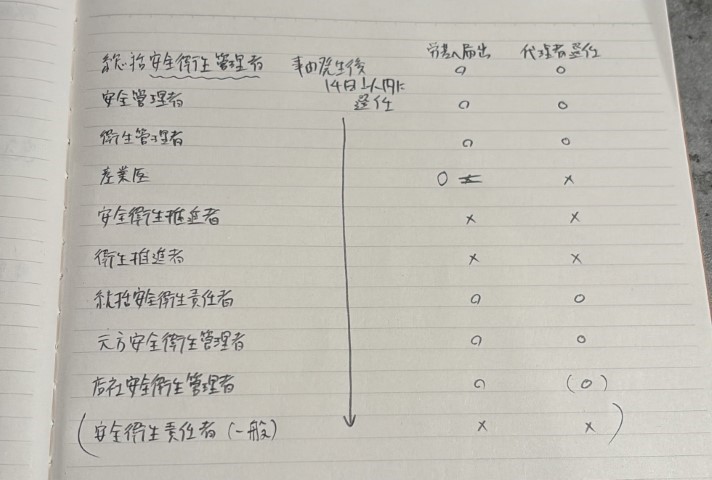 労基へ届出 代理者選任
総括安全衛生管理者 事由発生後 ○ ○
14日以内に
安全管理者 選任 ○ ○
衛生管理者 ○ ○
産業医 ○ ×
安全衛生推進者 × ×
衛生推進者 × ×
統括安全衛生責任者 ○ ○
元方安全衛生管理者 ○ ○
店社安全衛生管理者 ○ (○)
(安全衛生責任者 (一般) × ×)